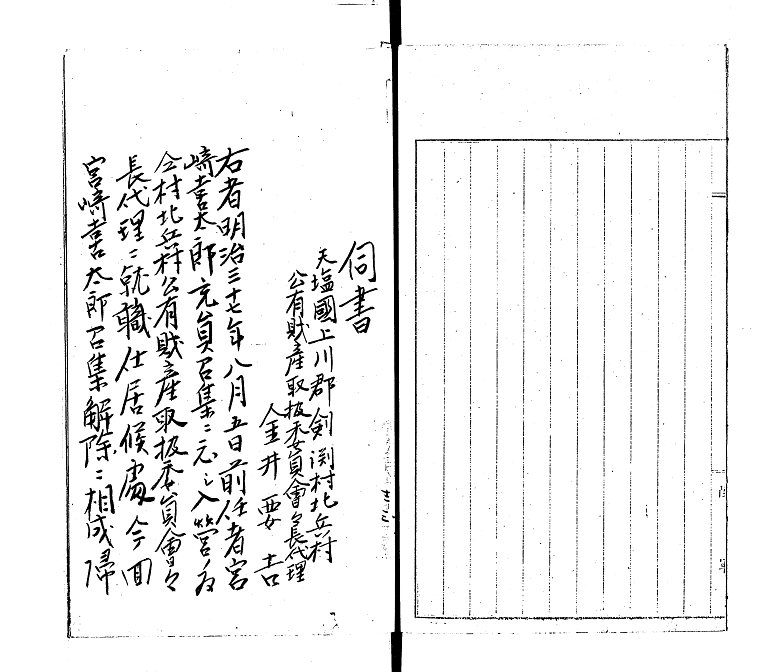 伺書
天塩國上川郡剣渕村北兵村
公有財産取扱委員會々長代理
金井要吉
右者明治三十七年八月五日前任者宮
崎喜太郎充員召集ニ応シ入営ノ為
仝村北兵村公有財産取扱委員會々
長代理ニ就職仕居候處今回
宮崎喜太郎召集解除ニ相成帰